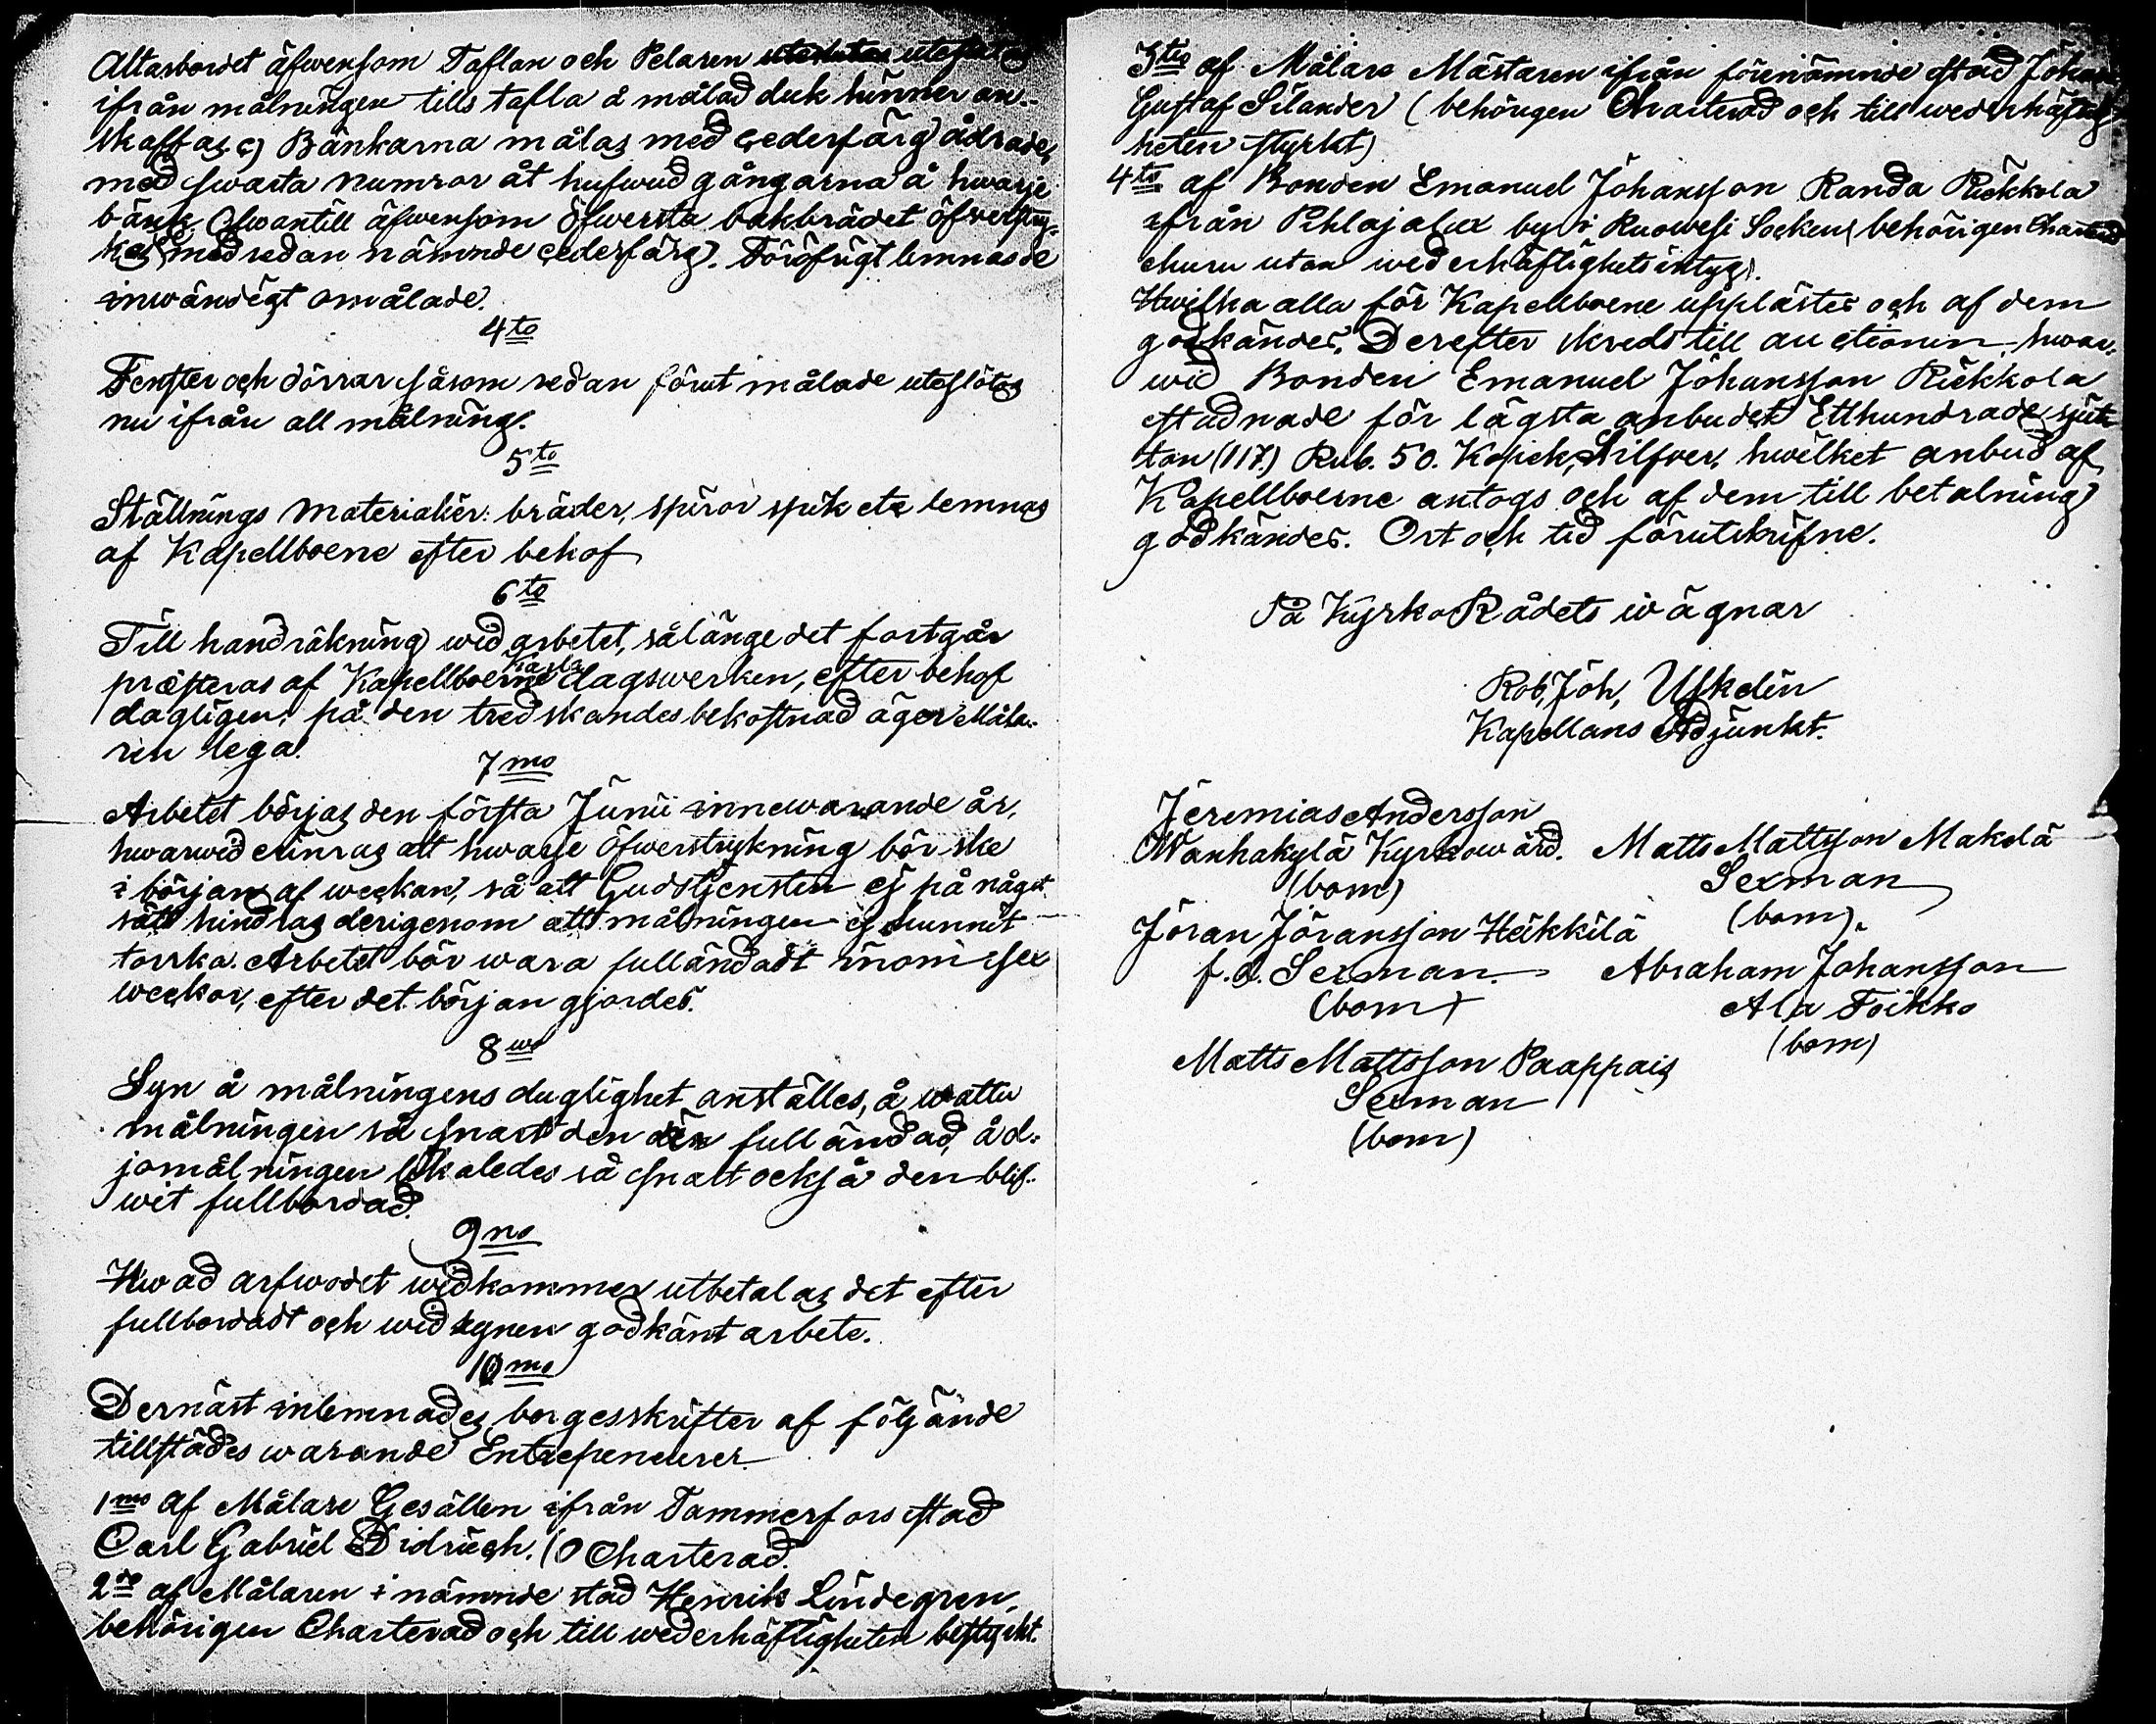 Altarbordet äfwensom Taflan och Pelaren
ifrån målningen tills tafla å målad duk hinner an-
skaffas c) Bänkarna målas med cederfärg ådrade,
med swarta Numror åt hufwudgångarna å hwarje
bänk. Ofwantill äfwensom öfwersta bakbrädet öfwerstry-
kas med redan nämnde cederfärg. Föröfrigt lemnas de
inwändigt omålade.
4to
Fenster och dörrar såsom redan förut målade uteslötas
nu ifrån all målning.
5to
Ställnings Materialier: bräder, spiror spik etc lemnas
af Kapellboerne efter behof
6to
Till handräkning wid arbetet, sålänge det fortgår
præsteras af Kapellboerne Karla dagswerken, efter behof
dagligen: på den tredskandes bekostnad äger Måla-
ren lega.
7mo
Arbetet börjas den första Junii innewarande år,
hwarwid erinras att hwarje öfwerstrykning bör ske
i början af weckan, så att Gudstjensten ej på något
sätt hindras derigenom att målningen ej hunnit
torrka. Arbetet bör wara fulländadt inom sex
weckor, efter det början gjordes.
8wo
Syn å målningens duglighet anställes, å watten
målningen så snart den är fulländad, å ol-
jomålningen likaledes så snart också den blif-
wit fullbordad.
9no
Hwad arfwodet widkommer utbetalas det efter
fullbordadt och wid synen godkänt arbete.
10mo
Dernäst inlemnades borgesskrifter af följande
tillstädes warande Entrepeneurer
1mo af Målare Gesällen ifrån Tammerfors stad
Carl Gabriel Didrich. (OCharterad.
2do af Målaren i nämnde stad Henrik Lindegren,
behörigen Charterad och till wederhäftigheten bestyrkt.
3tio af Målare Mästaren ifrån förenämnde stad Johan
Gustaf Silander (behörigen Charterad och till wederhäftig-
heten styrkt)
4to af Bonden Emanuel Johansson Randa Riekkola
ifrån Pihlajalax by i Ruowesi Socken (behörigen Charterad
ehuru utan wederhäftighetsintyg).
Hwilka alla för Kapellboerne upplästes och af dem
godkändes. Derefter skreds till auctionen, hwar-
wid Bonden Emanuel Johansson Riekkola
stadnade för lägsta anbudet Etthundrade sjut-
ton (117.) Rub. 50. Kopek, Silfver, hwilket anbud af
Kapellboerne antogs och af dem till betalning
godkändes. Ort och tid förutskrifne.
På KyrkoRådets wägnar
Rob. Joh. Uskelin
Kapellans Adjunkt.
Jeremias Andersson
Wanhakylä Kyrkowärd. Matts Mattsson Makelä
(bom) Sexman
Jöran Jöransson Heikkilä (bom).
f.d. Sexman. Abraham Johansson
(bom) Ala Toikko
Matts Mattsson Paappais (bom)
Sexman
(bom)